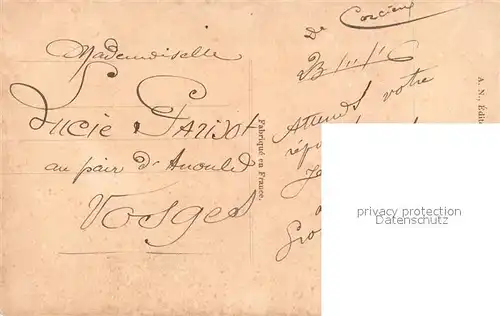 Mademoiselle
Lucie Parisot
au pair d'Anould
Vosges
Fabriqué en France.
de Corcieux
Attends votre
A. N., Édit
privacy protection
Datenschutz